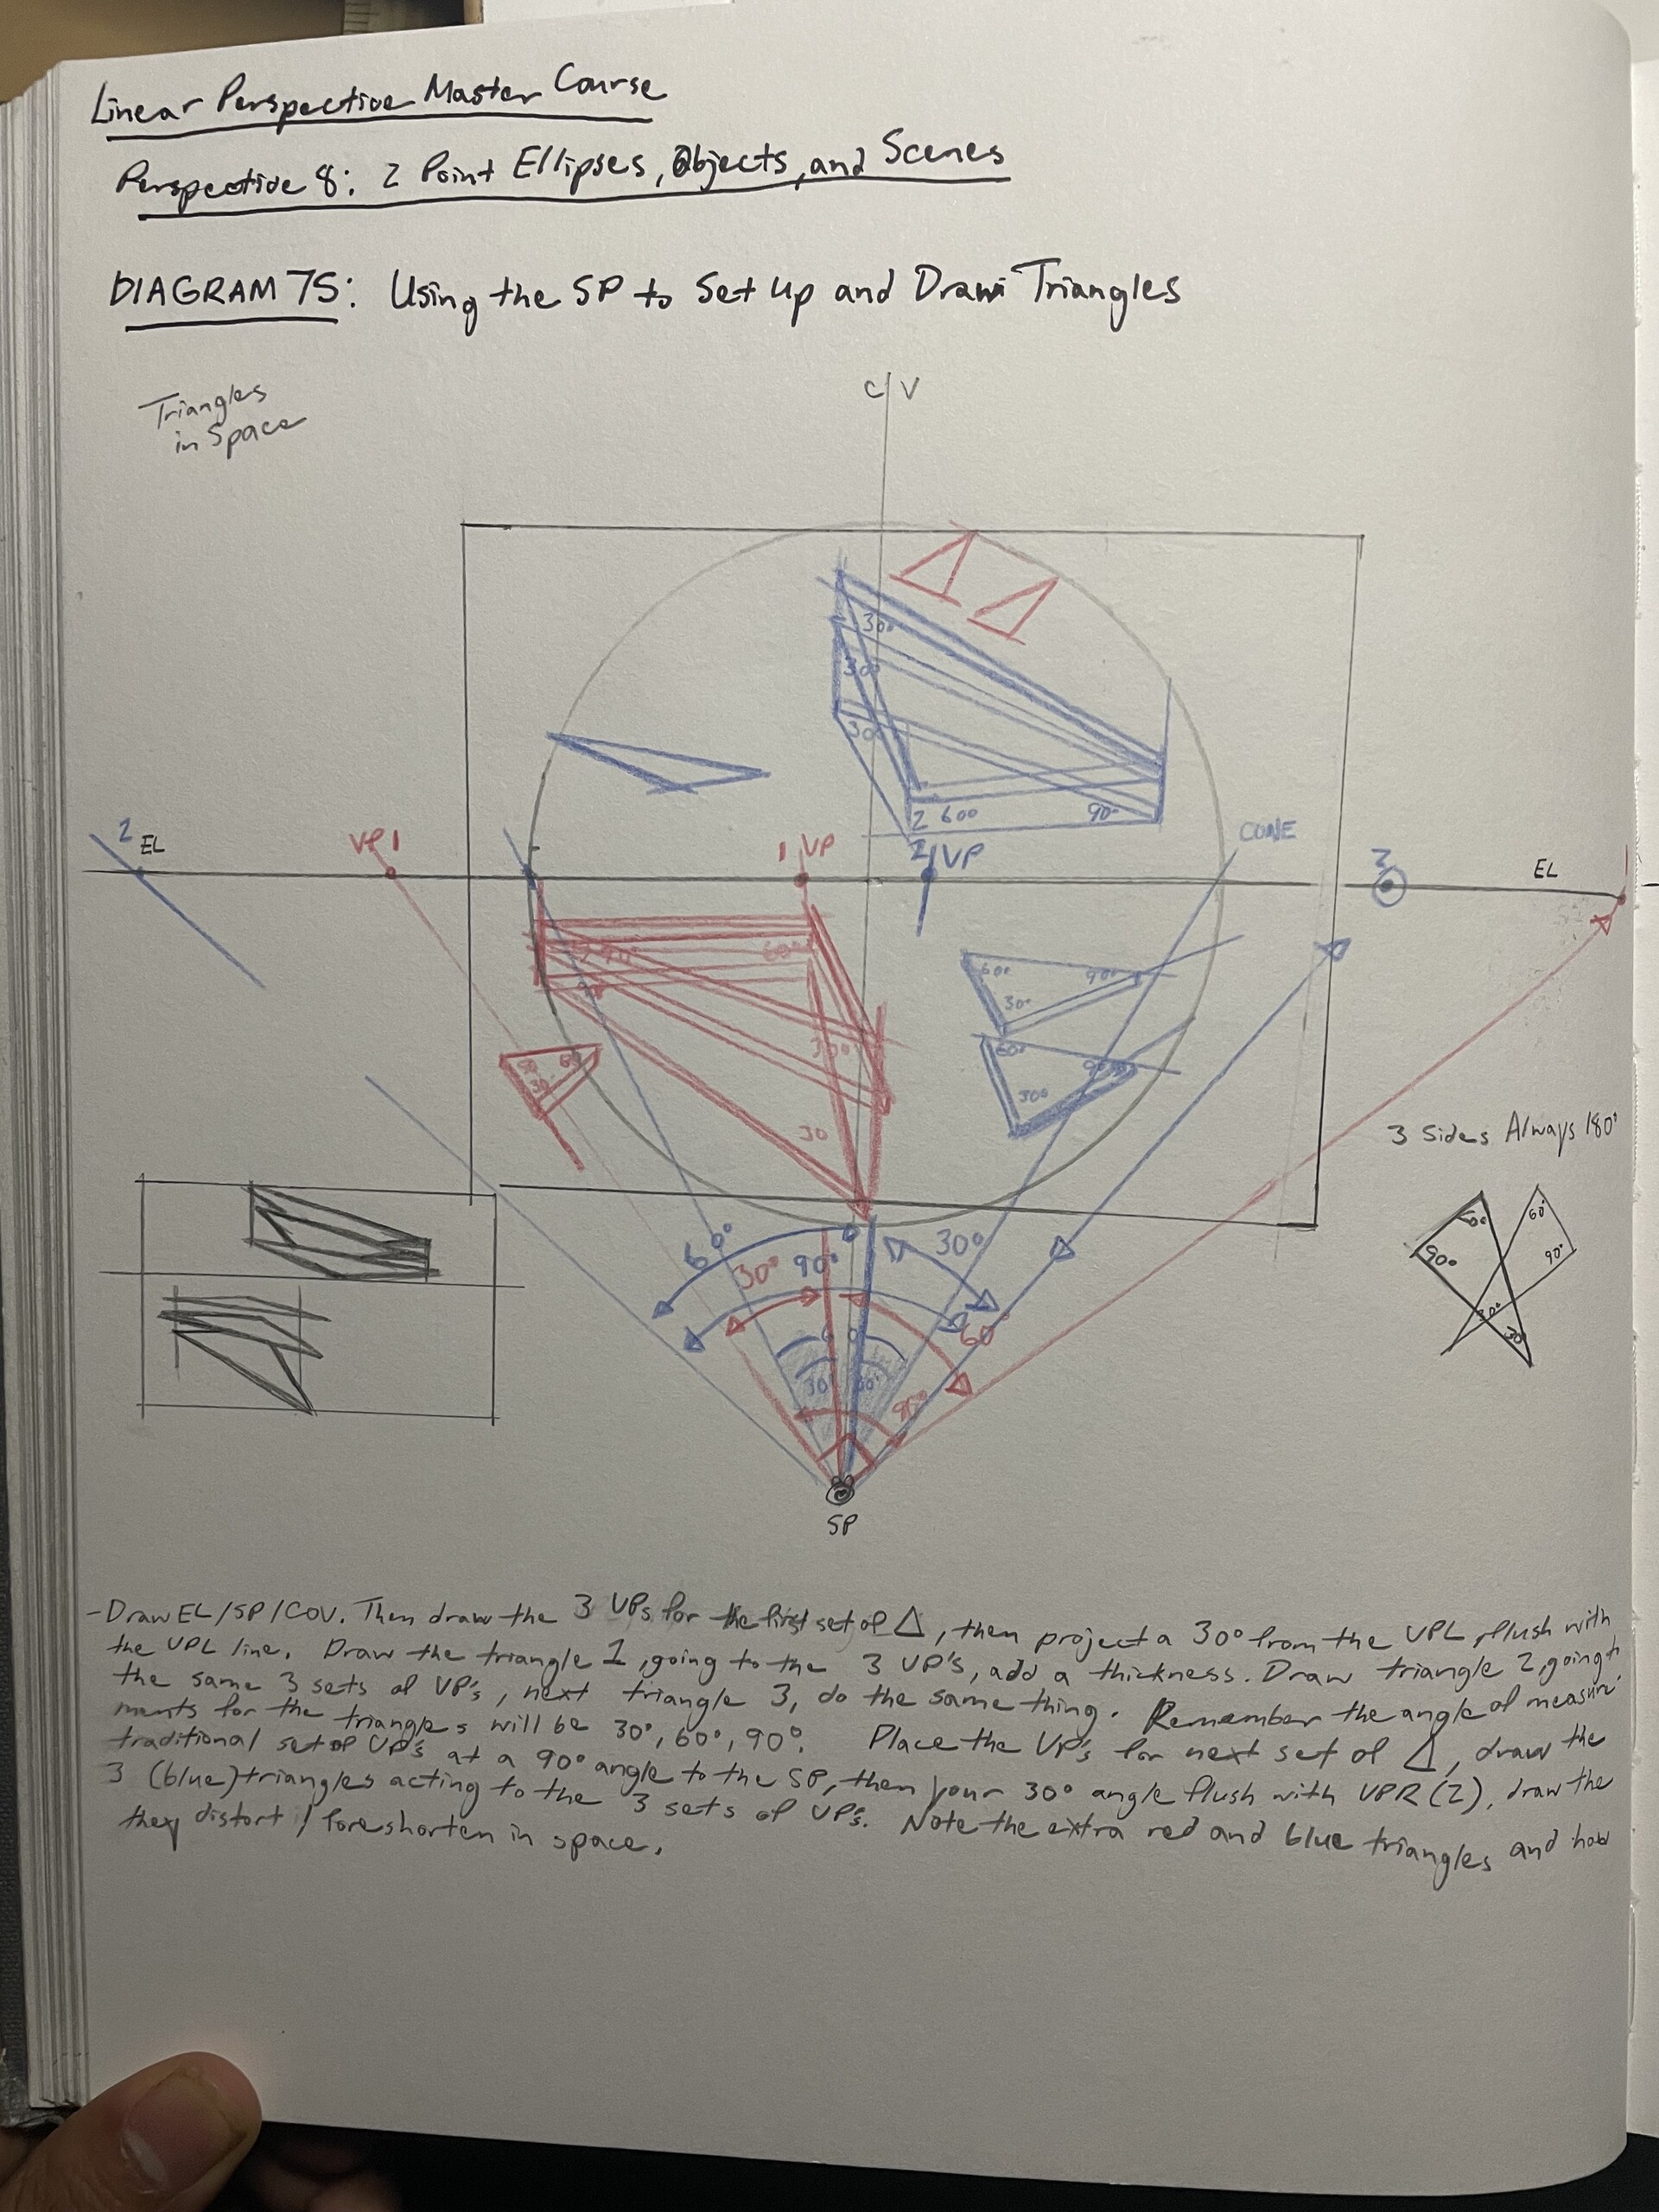 Linear Perspective Master Course
Perspective 8: 2 Point Ellipses, Objects, and Scenes
DIAGRAM 75: Using the SP to Set Up and Draw Triangles
Triangles
in Space
C/V
30°
30°
30°
2 60° 90°
2 EL
VP 1
1 VP
2/VP
CONE
3
EL
1
90° 60°
60° 90°
30°
30°
90° 60°
30°
60° 90°
30°
30
3 Sides Always 180°
60° 60°
90° 90°
30°
30
60° 30° 90° 30°
60°
60
30 30°
90°
SP
-Draw EL/SP/COV. Then draw the 3 VPs for the first set of △, then project a 30° from the VPL, flush with
the VPL line. Draw the triangle 1, going to the 3 VP's, add a thickness. Draw triangle 2, going to
the same 3 sets of VP's, next triangle 3, do the same thing. Remember the angle of measure-
ments for the triangles will be 30°, 60°, 90°. Place the VP's for next set of △, draw the
traditional set of VP's at a 90° angle to the SP, then your 30° angle flush with VPR (2), draw the
3 (blue) triangles acting to the 3 sets of VP's. Note the extra red and blue triangles and how
they distort / foreshorten in space.